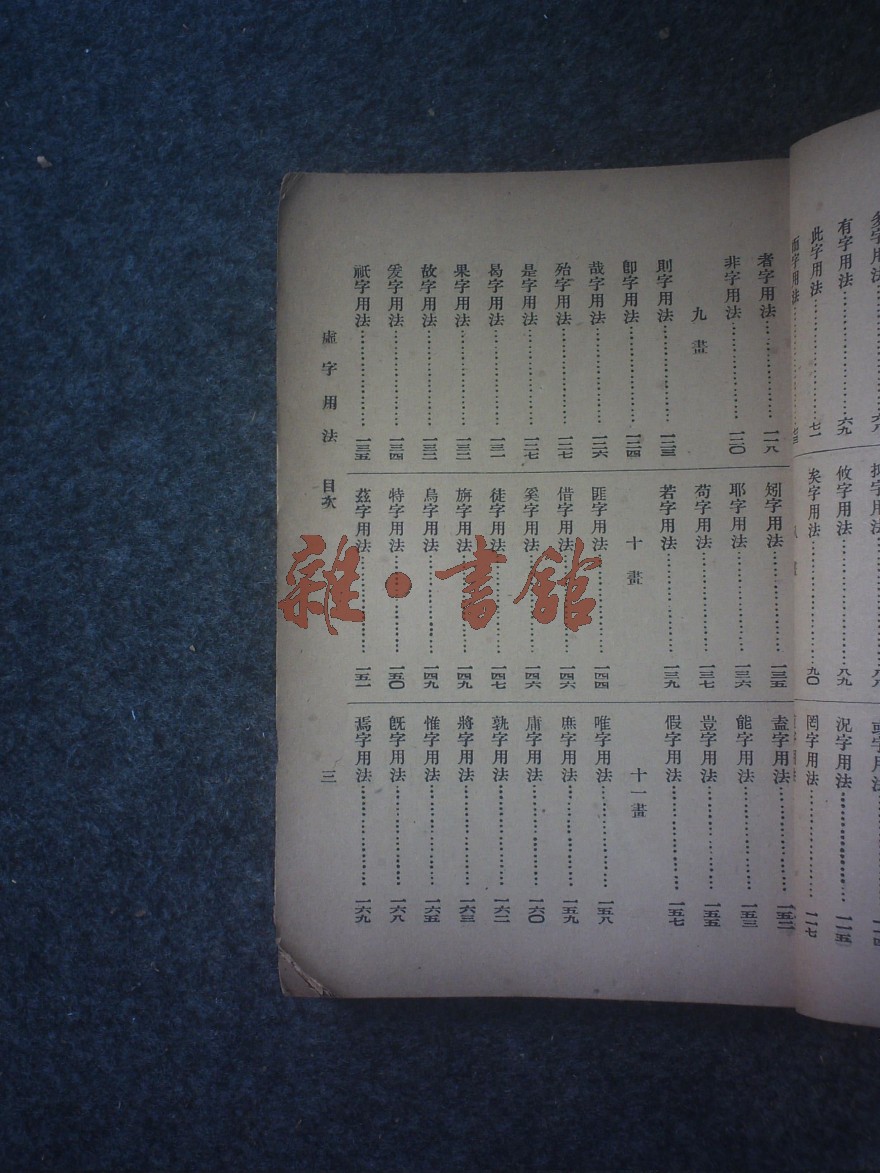 有字用法 六九
此字用法 七一
攸字用法 八九
矣字用法 九〇
況字用法 一一五
罔字用法 一一七
者字用法 一一八
非字用法 一二〇
九畫
則字用法 一二三
卽字用法 一二四
哉字用法 一二六
殆字用法 一二七
是字用法 一二七
曷字用法 一三一
果字用法 一三二
故字用法 一三二
爰字用法 一三四
祇字用法 一三五
矧字用法 一三五
耶字用法 一三六
苟字用法 一三七
若字用法 一三九
十畫
匪字用法 一四四
借字用法 一四六
奚字用法 一四六
徒字用法 一四七
旃字用法 一四九
烏字用法 一四九
特字用法 一五〇
茲字用法 一五一
盍字用法 一五二
能字用法 一五三
豈字用法 一五五
假字用法 一五七
十一畫
唯字用法 一五八
庶字用法 一五九
庸字用法 一六〇
孰字用法 一六二
將字用法 一六三
惟字用法 一六五
旣字用法 一六八
焉字用法 一六九
虛字用法 目次 三
雜·書館